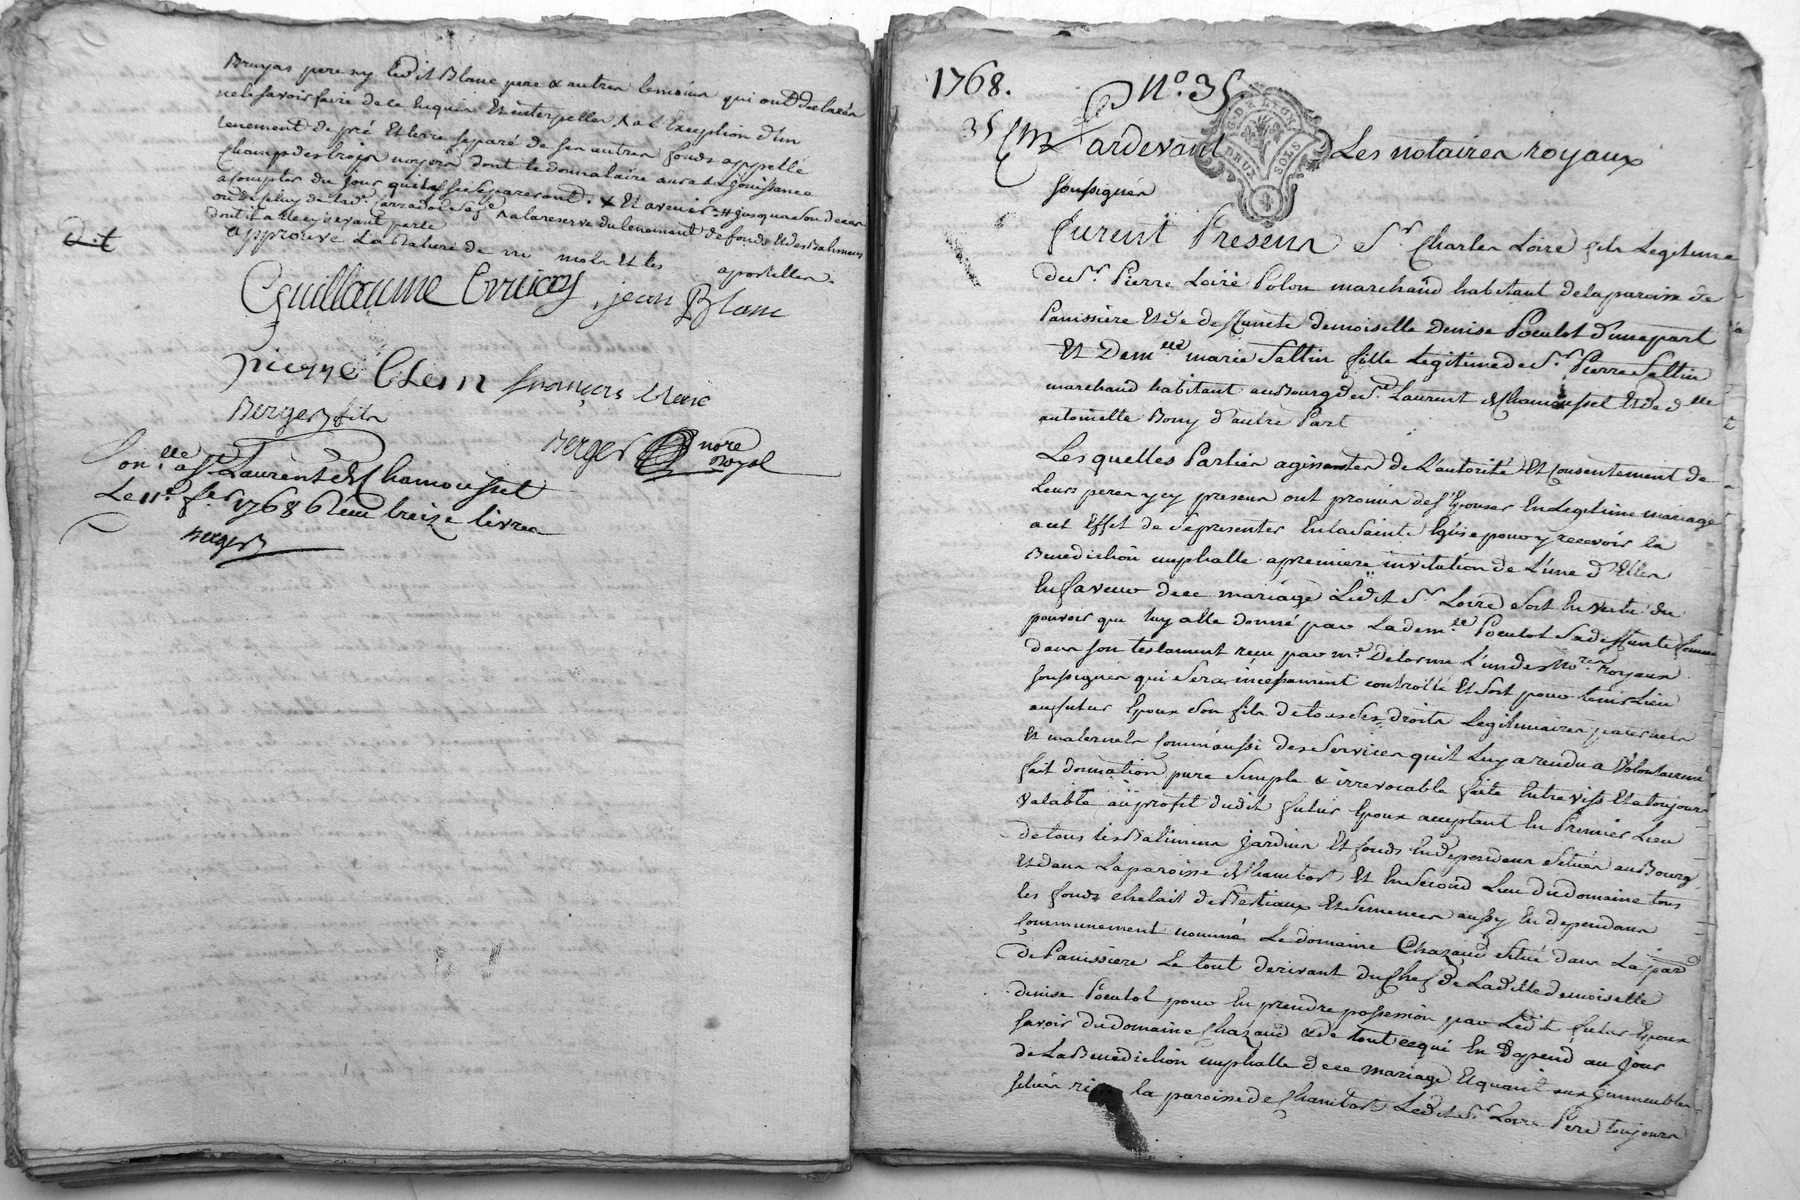 Bruyas pere ny ledit Blanc pere & autres temoins qui ont declarés
ne le savoir faire de ce Enquis Et interpellés, A l'Exception d'un
tenement de pré Et terre separé de ses autres fonds appellé
Champs des trois noyers dont le donnataire aura la jouissance
a compter du jour qu'ils se separeront. Et avenir jusqu'a son deces
a la reserve du tenement de fonds Et des Batimens
dont il a cy devant parlé
approuvé La Rature de mots Et les apostilles.
dit
Guillaume Bruyas, jean Blanc
pierre françois Blanc
Berger fils
Berger no.re Royal
Con.lle a S.t Laurent de Chamousset
Le 11.e f.er 1768 treize livres
Berger
1768. N.o 35.
35
Pardevant Les notaires royaux
soussignés
G. DE LYON
DEUX SOLS
furent Presens S.r Charles Loire fils Legitime
du S.r Pierre Loire Polon marchand habitant de la paroisse de
Panissiere Et de deffunte demoiselle Denise Poculot d'une part
Et Dem.lle marie Sattin fille Legitime de S.r Pierre Sattin
marchand habitant au Bourg de S.t Laurent de Chamousset Et de d.lle
antoinette Bony d'autre Part
Les quelles Parties agissantes de L'autorité Et Consentement de
Leurs peres y cy presens ont promis de s'Epouser En Legitime mariage
a cet Effet de se presenter En la Sainte Eglise pour y recevoir la
Benediction nuptialle a premiere invitation de L'une d'Elles
En faveur de ce mariage Ledit S.r Loire Soit En vertu du
pouvoir que luy a été donné par La dem.lle Poculot Sa deffunte femme
dans son testament reçu par m.e Delorme L'un des No.res royaux
soussignés qui sera incessament controllé Et Soit pour tenir Lieu
au futur Epoux son fils de tous ses droits Legitimaires paternels
Et maternels comm'aussi des Services qu'il Luy a rendu a Volontairem.t
fait donnation pure Simple & irrevocable faite Entre vifs Et a toujours
Valable au profit dudit futur Epoux acceptant En Premier Lieu
de tous les Batimens Jardins Et fonds En dependans Situés au Bourg
Et dans La paroisse de Chambost Et En Second Lieu du domaine tous
les fonds chelait de Bestiaux Et Semences aussy En dependans
Communement nommé Le domaine Chazaud Situé dans La par.
de Panissiere Le tout derivant du Chef de Ladite demoiselle
denise Poculot pour En prendre possession par Ledit futur Epoux
Savoir du domaine Chazaud & de tout ce qui En depend au Jour
de La Benediction nuptialle de ce mariage Et quant aux immeubles
situés la paroisse de Chambost Ledit S.r Loire Pere toujours